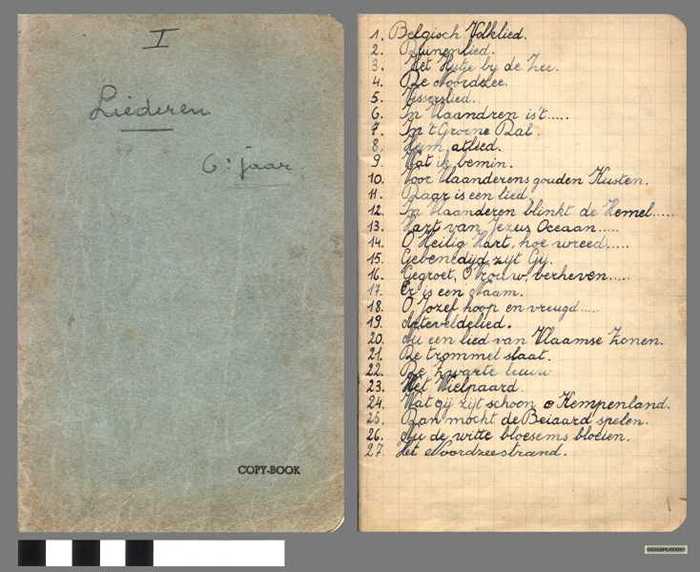 I
Liederen
6e jaar
COPY-BOOK
1. Belgisch Volklied.
2. Duinenlied.
3. Het Hutje bij de Zee.
4. De Noordzee.
5. Visserslied.
6. In Vlaandren is't.....
7. In 't Groene Dal.
8. lied.
9. Wat ik bemin.
10. Voor Vlaanderens gouden Kusten.
11. Daar is een lied
12. In Vlaanderen blinkt de Hemel......
13. Hart van Jezus Oceaan.....
14. O Heilig Hart, hoe wreed.....
15. Gebenedijd zijt Gij.
16. Gegroet, O Vrouw, verheven.....
17. Er is een Naam.
18. O Jozef hoop en vreugd.....
19. Arteveldelied.
20. Nu een lied van Vlaamse Zonen.
21. De trommel slaat.
22. De zwarte leeuw
23. Het Wielpaard.
24. Wat gij zijt schoon o Kempenland.
25. Dan mocht de Beiaard spelen.
26. Nu de witte bloesems bloeien.
27. Het Noordzeestrand.